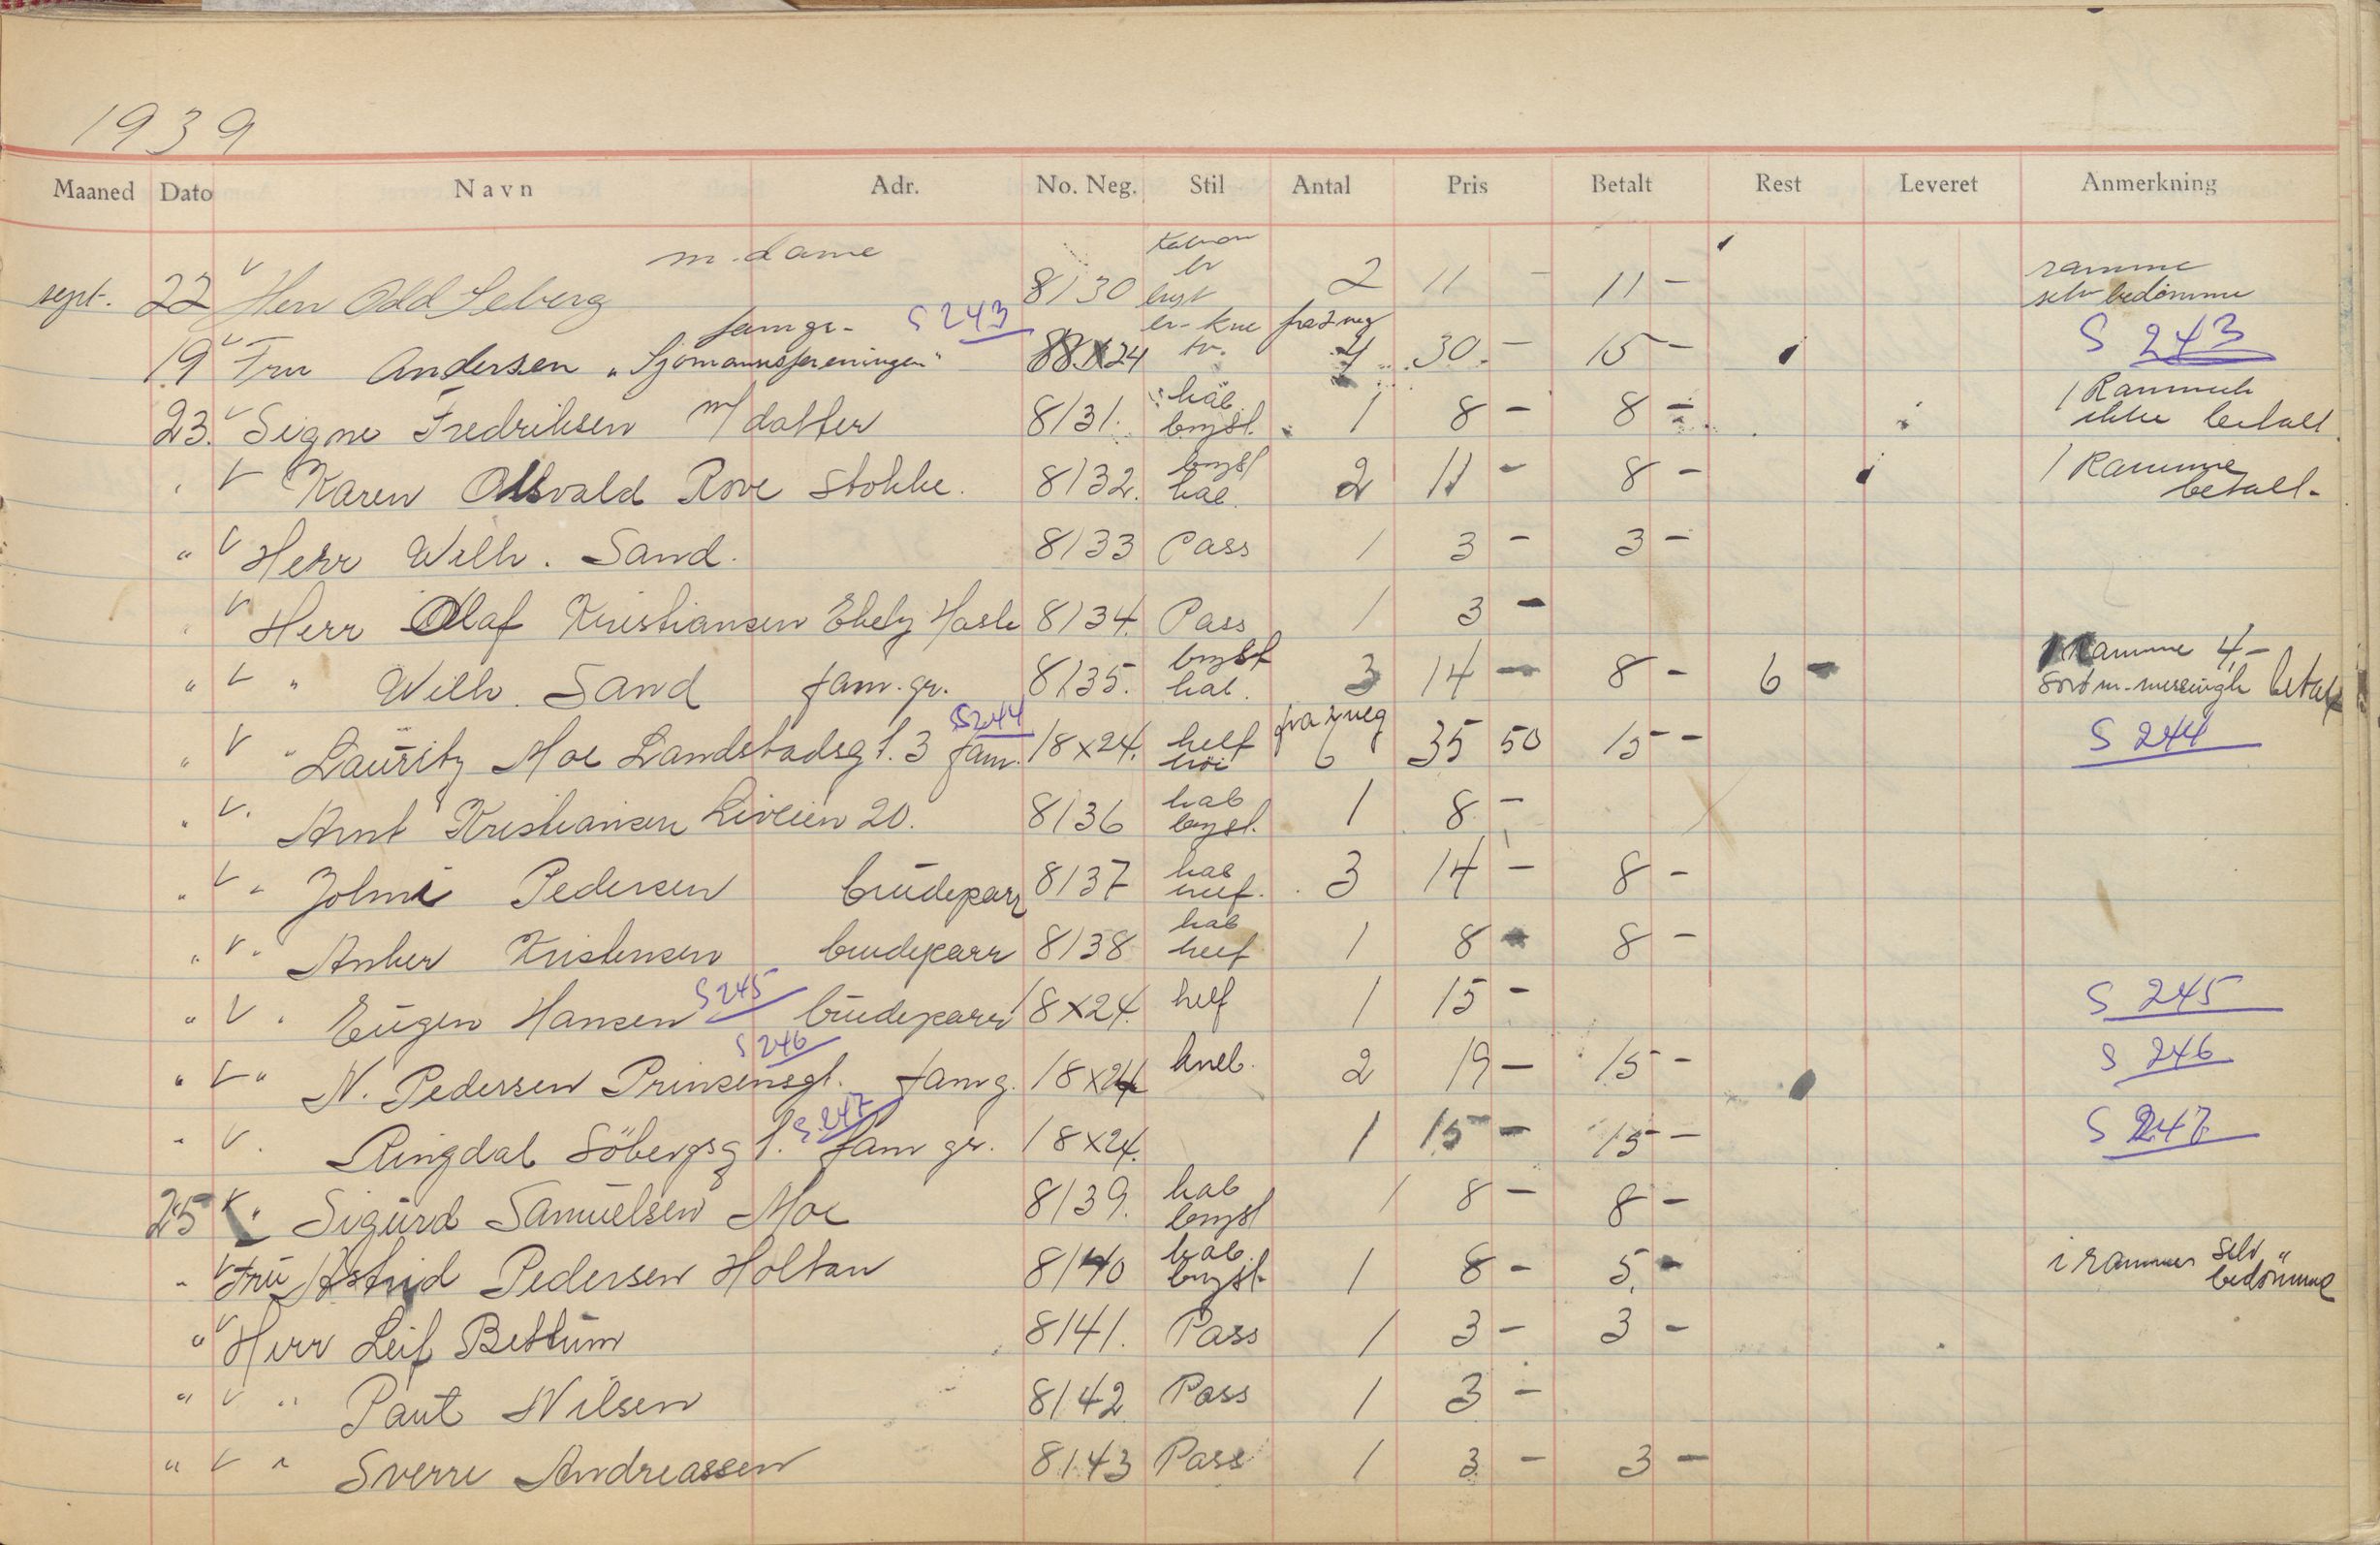 1939
Maaned Dato Navn Adr. No. Neg. Stil Antal Pris Betalt Rest Leveret Anmerkning
m. dame
sept. 22 Herr Odd Seberg 8130 bryst 2 11 - 11 - ramme
selv bedömme
fam gr. S 243 kne fra 2 neg
19 Fru Andersen "Sjömannsforeningen" 18X24 4 30.- 15 - S 243
23. Signe Fredriksen m/datter 8131. hab. bryst. 1 8 - 8 - 1 Ramme
ikke betalt
Karen Osvald Rove Stokke. 8132. bryst hab. 2 11 - 8 - 1 Ramme
betalt.
" Herr Wilh. Sand. 8133 Pass 1 3 - 3 -
" Herr Olaf Kristiansen Ekely Hasle 8134. Pass 1 3 -
" " Wilh. Sand fam. gr. 8135. bryst hab. 3 14 - 8 - 6 - Ramme 4,-
sort m. messing betalt
S 244 fra 2 neg
" " Lauritz Moe Landstadsgt. 3 fam. 18x24. helf 6 35 50 15 - S 244
" Arnt Kristiansen Liveien 20. 8136 hab bryst. 1 8 -
" " Pedersen brudeparr 8137 hab 3 14 - 8 -
" " Anker Kristensen brudeparr 8138 hab helf 1 8 - 8 -
" " Eugen Hansen S 245 brudeparr 18x24. helf 1 15 - S 245
S 246
" " N. Pedersen Prinsensgt. fam g. 18x24 kneb. 2 19 - 15 - S 246
S. 247
" Ringdal Söbergsgt. fam gr. 18x24. 1 15 - 15 - S 247
25 " Sigurd Samuelsen Moe 8139. hab bryst 1 8 - 8 -
" Fru Astrid Pedersen Holtan 8140 hab. bryst. 1 8 - 5. - i rammer selv
bedömme
" Herr Leif Bettum 8141. Pass 1 3 - 3 -
" " Paul Nilsen 8142 Pass 1 3 -
" " Sverre Andreassen 8143 Pass 1 3 - 3 -